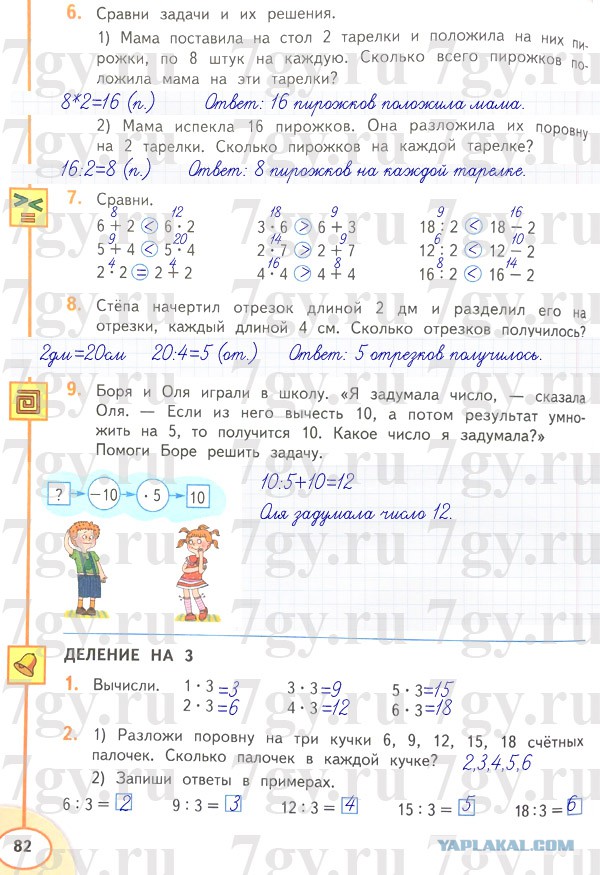 6. Сравни задачи и их решения.
1) Мама поставила на стол 2 тарелки и положила на них пи-
рожки, по 8 штук на каждую. Сколько всего пирожков по-
ложила мама на эти тарелки?
8*2=16 (п.) Ответ: 16 пирожков положила мама.
2) Мама испекла 16 пирожков. Она разложила их поровну
на 2 тарелки. Сколько пирожков на каждой тарелке?
16:2=8 (п.) Ответ: 8 пирожков на каждой тарелке.
7. Сравни.
8 12 18 9 9 16
6 + 2 < 6 · 2 3 · 6 > 6 + 3 18 : 2 < 18 − 2
9 20 14 9 6 10
5 + 4 < 5 · 4 2 · 7 > 2 + 7 12 : 2 < 12 − 2
4 4 16 8 8 14
2 · 2 = 2 + 2 4 · 4 > 4 + 4 16 : 2 < 16 − 2
8. Стёпа начертил отрезок длиной 2 дм и разделил его на
отрезки, каждый длиной 4 см. Сколько отрезков получилось?
2дм=20см 20:4=5 (от.) Ответ: 5 отрезков получилось.
9. Боря и Оля играли в школу. «Я задумала число, — сказала
Оля. — Если из него вычесть 10, а потом результат умно-
жить на 5, то получится 10. Какое число я задумала?»
Помоги Боре решить задачу.
? −10 · 5 10
10:5+10=12
Оля задумала число 12.
ДЕЛЕНИЕ НА 3
1. Вычисли. 1 · 3 =3 3 · 3 =9 5 · 3 =15
2 · 3 =6 4 · 3 =12 6 · 3 =18
2. 1) Разложи поровну на три кучки 6, 9, 12, 15, 18 счётных
палочек. Сколько палочек в каждой кучке? 2,3,4,5,6
2) Запиши ответы в примерах.
6 : 3 = 2 9 : 3 = 3 12 : 3 = 4 15 : 3 = 5 18 : 3 = 6
82
7gy.ru
YAPLAKAL.COM